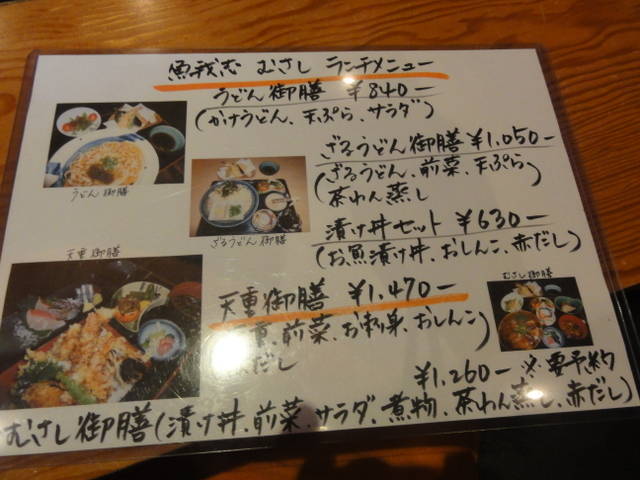 魚我志 むさし ランチメニュー
うどん御膳 ¥840ー
(かけうどん、天ぷら、サラダ)
うどん御膳
ざるうどん御膳 ¥1,050ー
(ざるうどん、前菜、天ぷら
茶わん蒸し)
ざるうどん御膳
漬け丼セット ¥630ー
(お魚漬け丼、おしんこ、赤だし)
天重御膳
天重御膳 ¥1,470ー
重、前菜、お刺身、おしんこ
だし)
むさし御膳
¥1,260ー ※要予約
むさし御膳(漬け丼、前菜、サラダ、煮物、茶わん蒸し、赤だし)